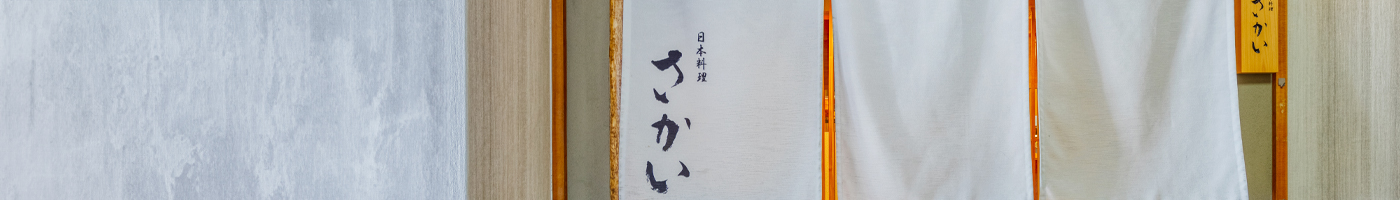 日本料理
さかい
さかい